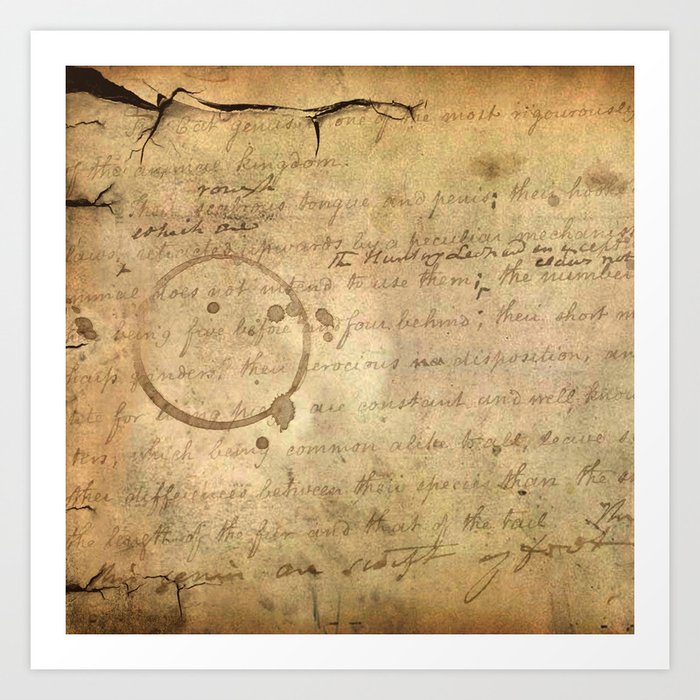 The Cat genus is one of the most rigourously
of the animal kingdom.
rough
Their scabrous tongue and penis; their hooke
which are
claws, retracted upwards by a peculiar mechanism
The Hunting Leopard an except
claws not
animal does not intend to use them; the number
being five before and four behind; their short m
grinders; their ferocious disposition, an
for living prey are constant and well know
ters, which being common alike to all, leave
other differences between their species than the
the length of the fur and that of the tail
genus are swift of foot